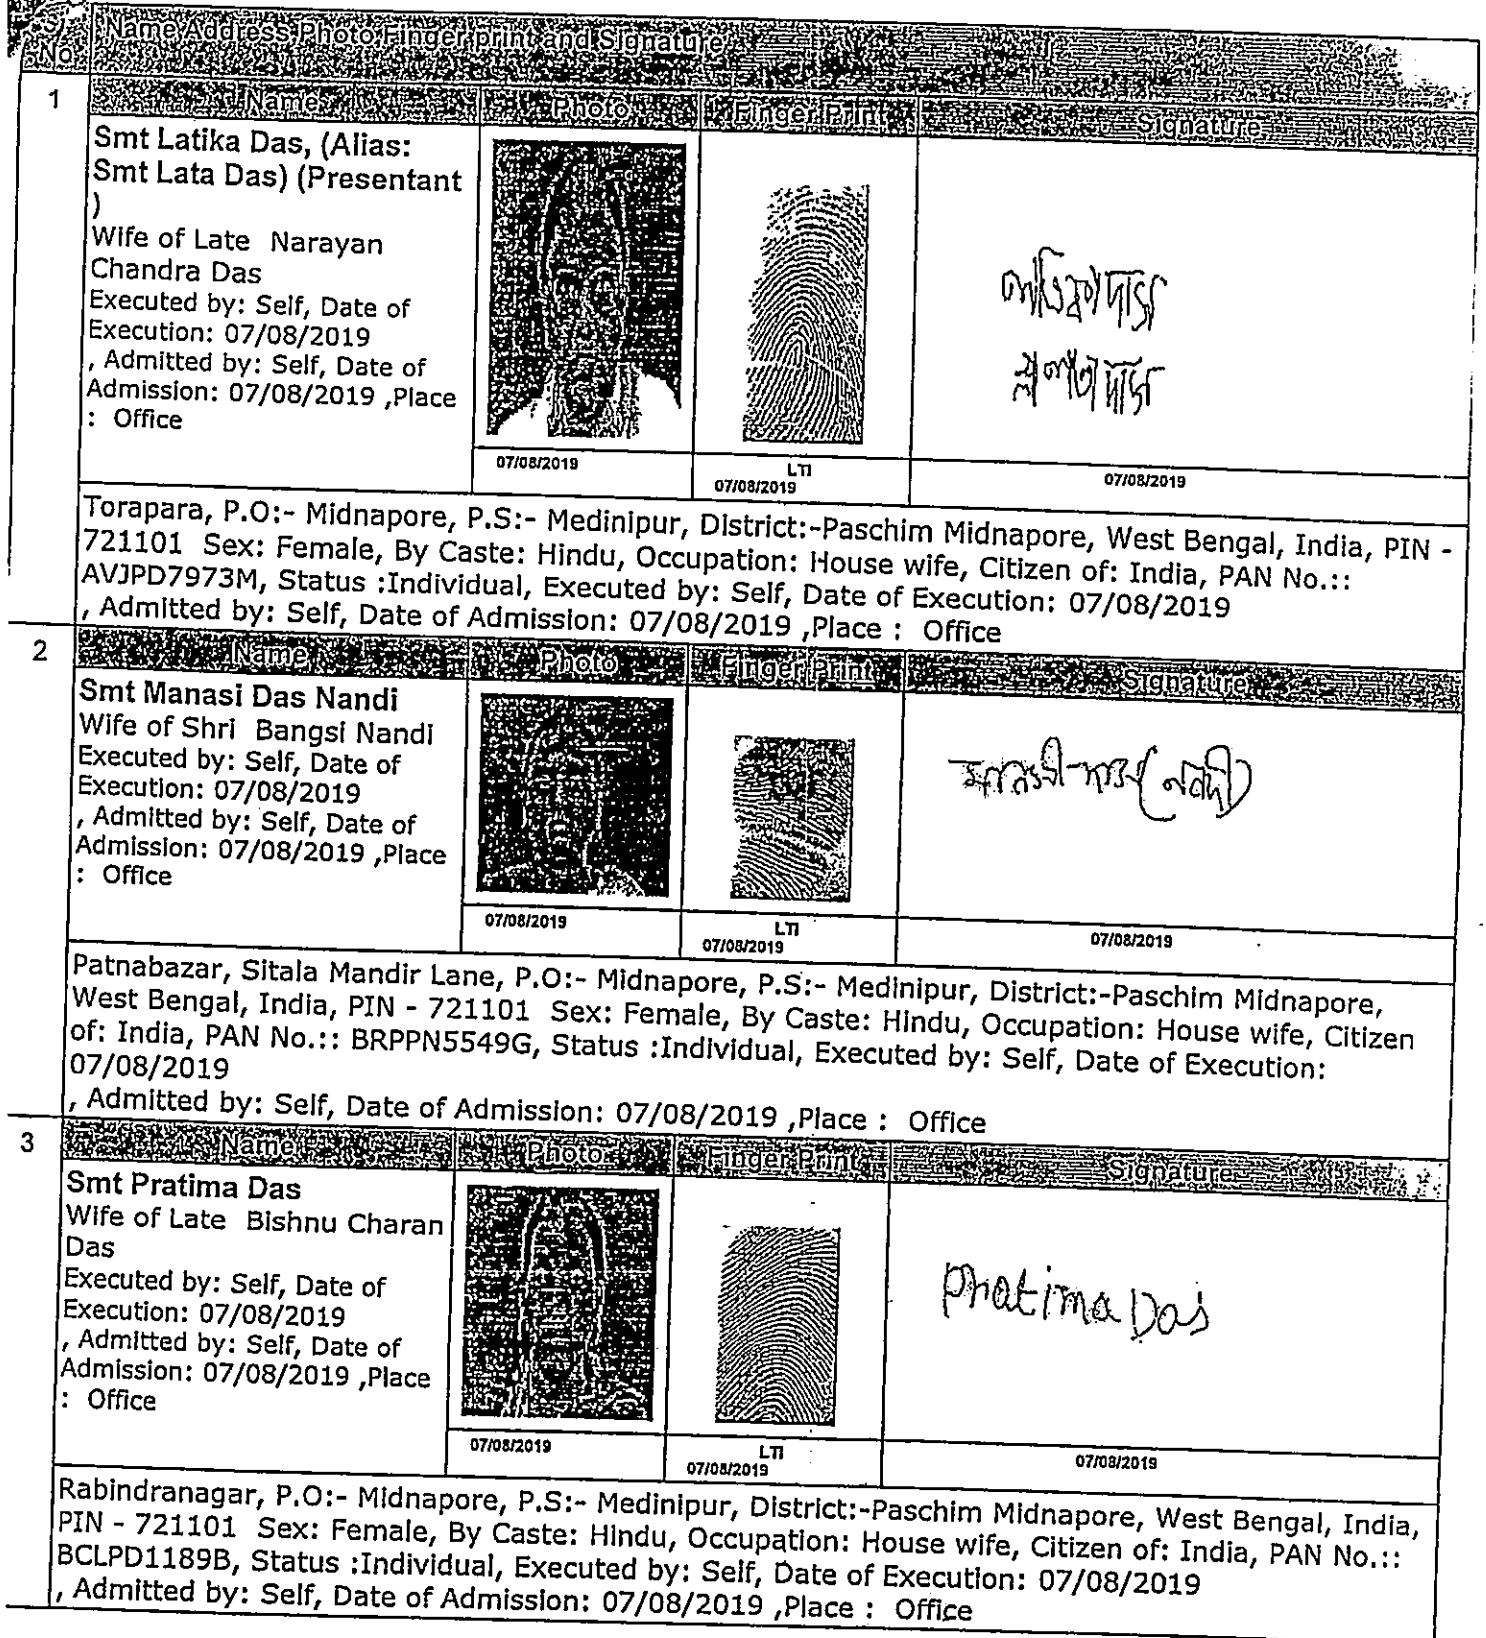 Sl
No
Name,Address,Photo,Finger print and Signature
1
Name Photo Finger Print Signature
Smt Latika Das, (Alias:
Smt Lata Das) (Presentant
)
Wife of Late Narayan
Chandra Das
Executed by: Self, Date of
Execution: 07/08/2019
, Admitted by: Self, Date of
Admission: 07/08/2019 ,Place
: Office
লতিকা দাস
লতা দাস
07/08/2019
LTI
07/08/2019
07/08/2019
Torapara, P.O:- Midnapore, P.S:- Medinipur, District:-Paschim Midnapore, West Bengal, India, PIN -
721101 Sex: Female, By Caste: Hindu, Occupation: House wife, Citizen of: India, PAN No.::
AVJPD7973M, Status :Individual, Executed by: Self, Date of Execution: 07/08/2019
, Admitted by: Self, Date of Admission: 07/08/2019 ,Place : Office
2
Name Photo Finger Print Signature
Smt Manasi Das Nandi
Wife of Shri Bangsi Nandi
Executed by: Self, Date of
Execution: 07/08/2019
, Admitted by: Self, Date of
Admission: 07/08/2019 ,Place
: Office
মানসী দাস (নন্দী)
07/08/2019
LTI
07/08/2019
07/08/2019
Patnabazar, Sitala Mandir Lane, P.O:- Midnapore, P.S:- Medinipur, District:-Paschim Midnapore,
West Bengal, India, PIN - 721101 Sex: Female, By Caste: Hindu, Occupation: House wife, Citizen
of: India, PAN No.:: BRPPN5549G, Status :Individual, Executed by: Self, Date of Execution:
07/08/2019
, Admitted by: Self, Date of Admission: 07/08/2019 ,Place : Office
3
Name Photo Finger Print Signature
Smt Pratima Das
Wife of Late Bishnu Charan
Das
Executed by: Self, Date of
Execution: 07/08/2019
, Admitted by: Self, Date of
Admission: 07/08/2019 ,Place
: Office
Pratima Das
07/08/2019
LTI
07/08/2019
07/08/2019
Rabindranagar, P.O:- Midnapore, P.S:- Medinipur, District:-Paschim Midnapore, West Bengal, India,
PIN - 721101 Sex: Female, By Caste: Hindu, Occupation: House wife, Citizen of: India, PAN No.::
BCLPD1189B, Status :Individual, Executed by: Self, Date of Execution: 07/08/2019
, Admitted by: Self, Date of Admission: 07/08/2019 ,Place : Office